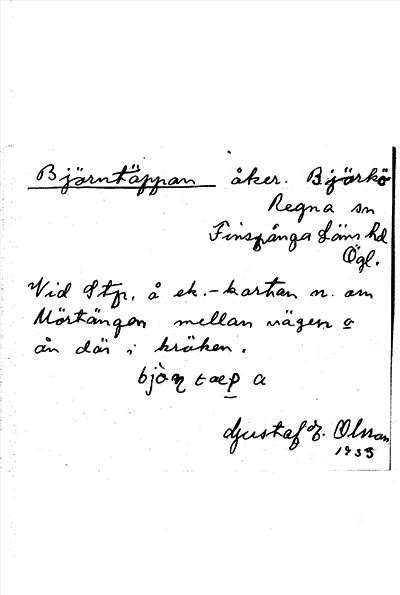 Björntäppan åker. Björkö
Regna sn
Finspånga Läns hd
Ögl.
Vid Stp. å ek.-kartan n. om
Mörtängen mellan vägen o
ån där i kröken.
Gustaf Olsson
1933